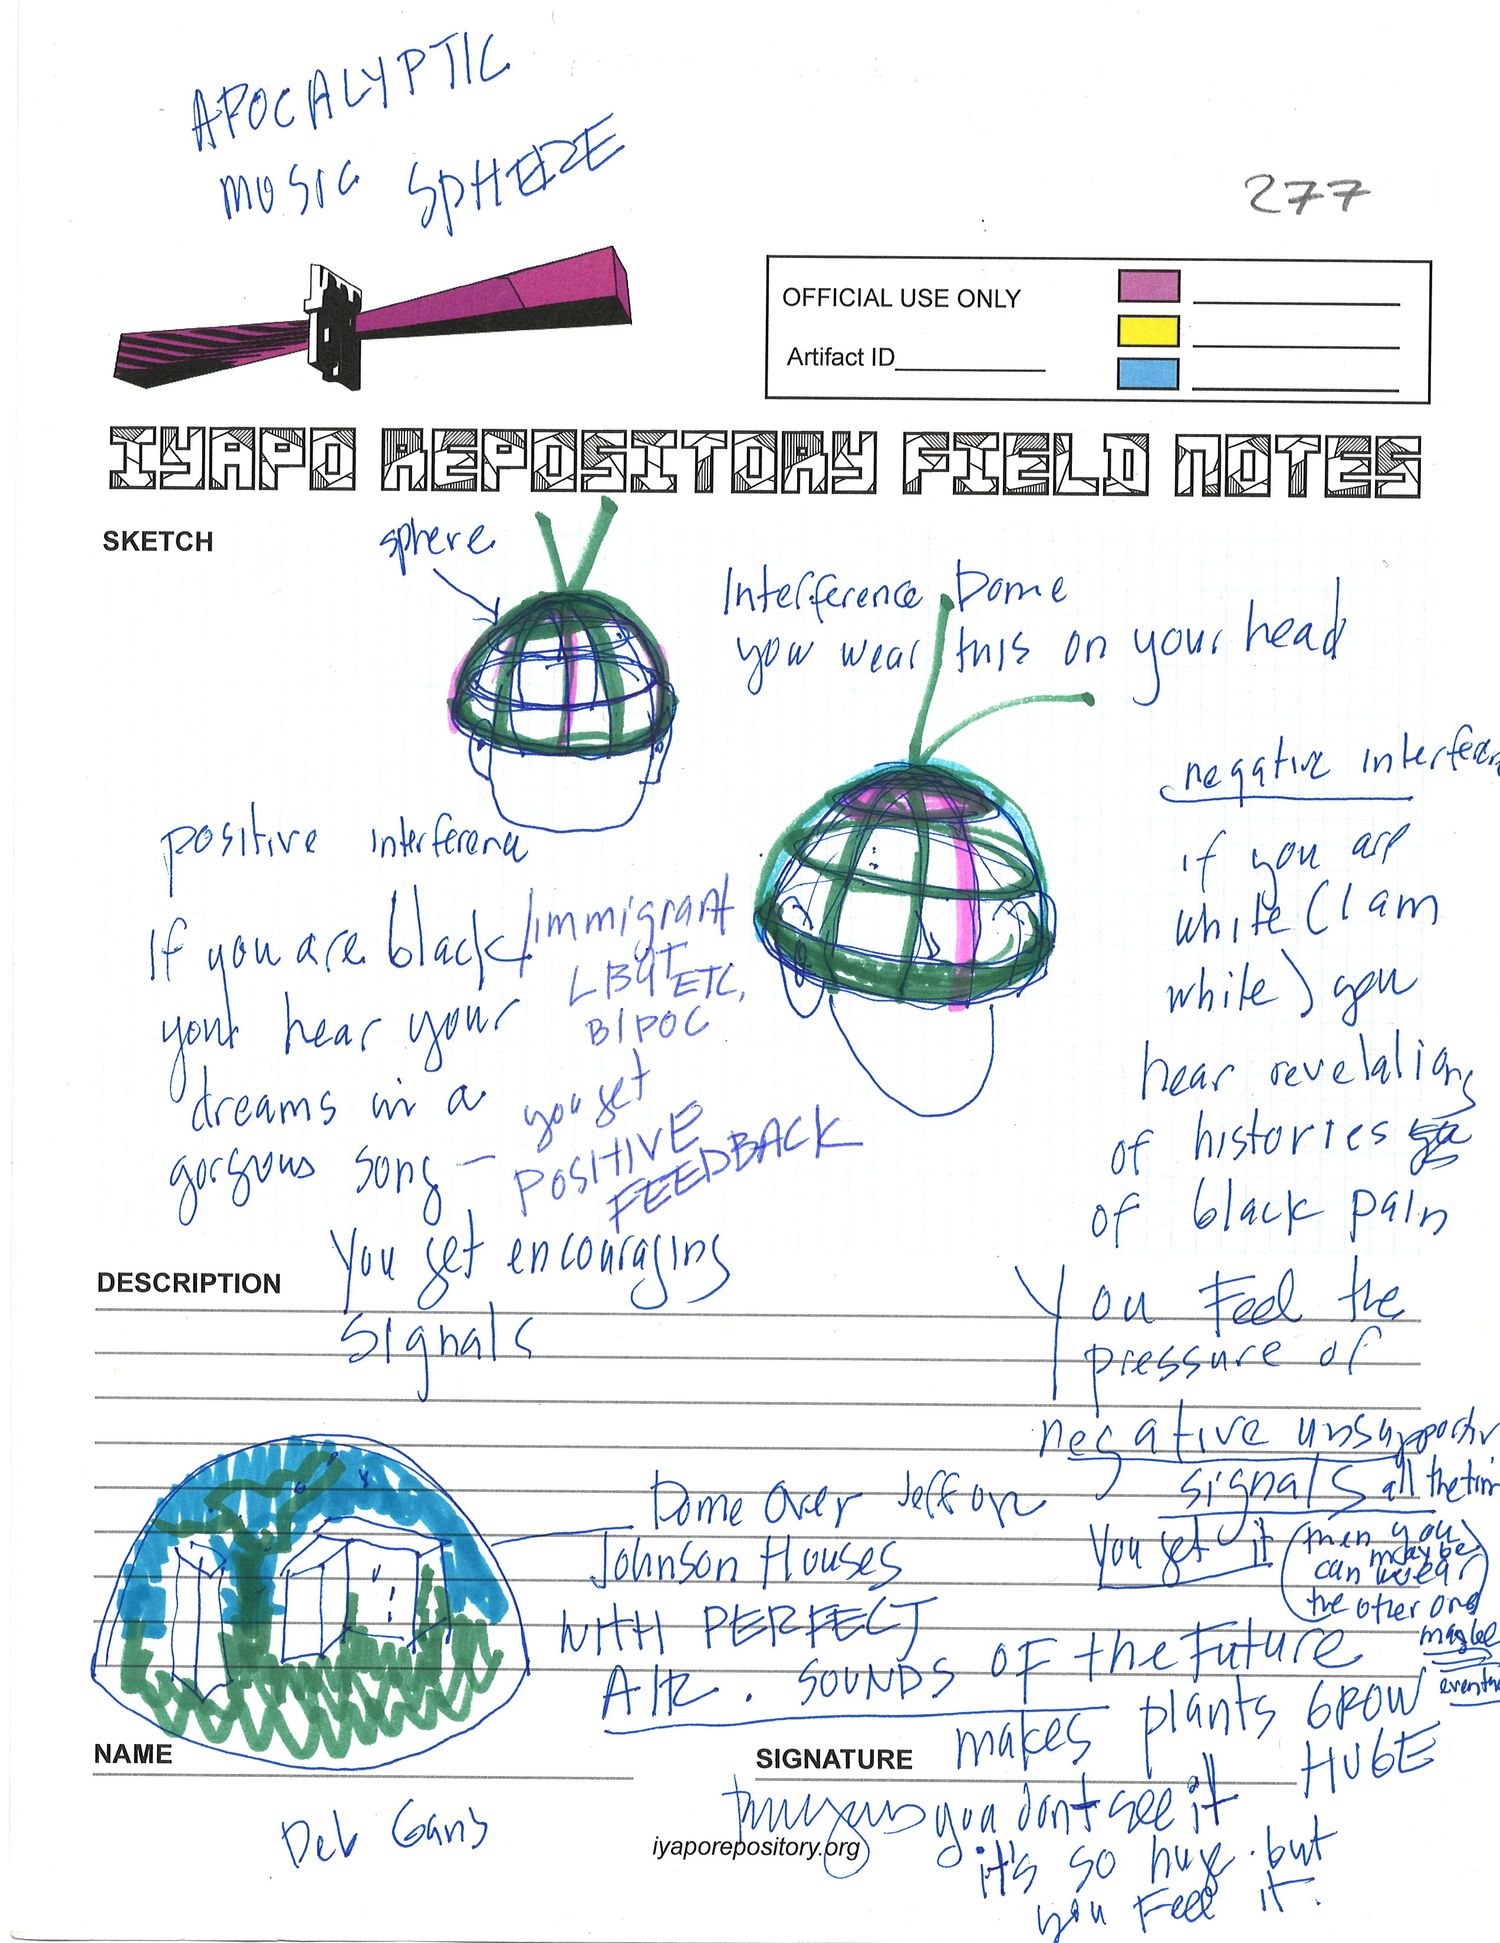 APOCALYPTIC
MUSIC SPHERE
277
OFFICIAL USE ONLY
Artifact ID
IYAPO REPOSITORY FIELD NOTES
SKETCH
sphere
Interference Dome
you wear this on your head
positive interference
If you are black/immigrant
LBGT ETC,
BIPOC
your hear your
dreams in a
gorgous song — you get
POSITIVE
FEEDBACK
You get encouraging
signals
negative interferen
if you are
white (I am
white) you
hear revelations
of histories
of black pain
You Feel the
pressure of
negative unsupportiv
signals all the tim
You get it (then you
can maybe wear
the other one)
maybe
eventu
DESCRIPTION
Dome Over Jefferson
Johnson Houses
WITH PERFECT
AIR. SOUNDS OF the Future
makes plants GROW
HUGE
you dont see it
it's so huge. but
you Feel it.
NAME
Deb Gans
SIGNATURE
iyaporepository.org